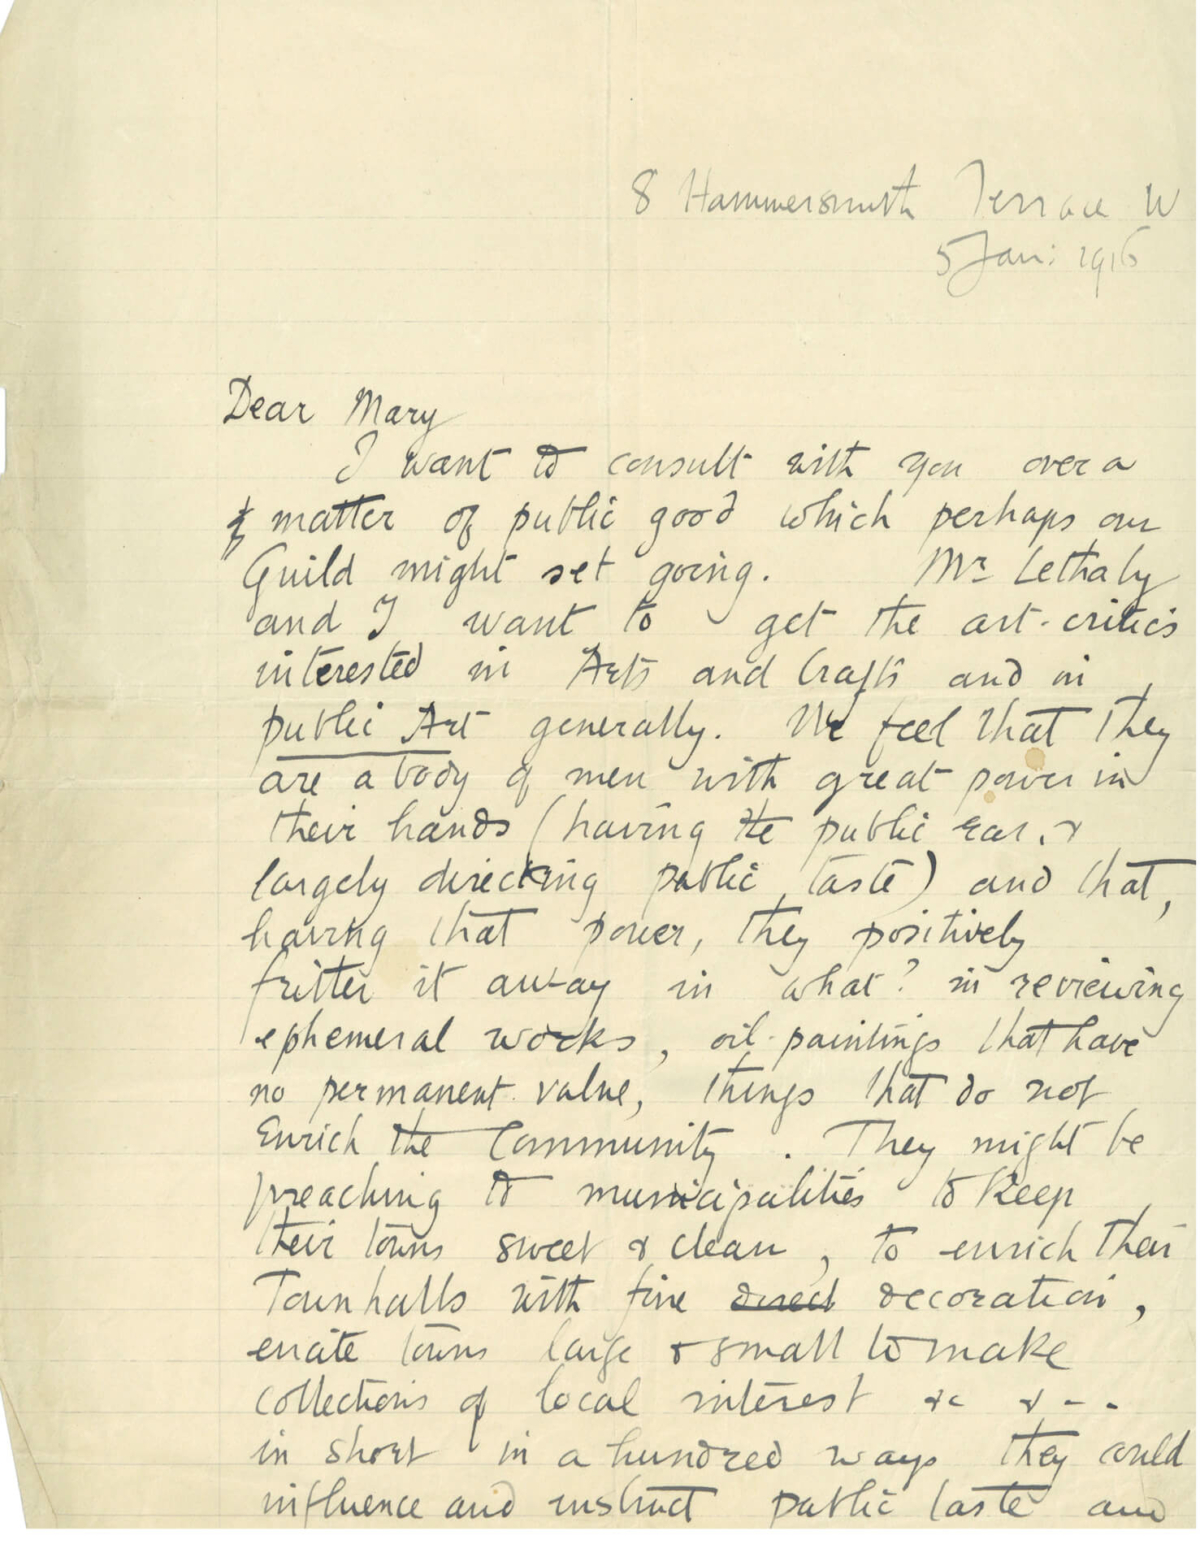 8 Hammersmith Terrace W
5 Jan: 1916
Dear Mary
I want to consult with you over a
matter of public good which perhaps our
Guild might set going. Mr Lethaby
and I want to get the art-critics
interested in Arts and Crafts and in
public Art generally. We feel that they
are a body of men with great power in
their hands (having the public ear, &
largely directing public taste) and that,
having that power, they positively
fritter it away in what? in reviewing
ephemeral works, oil-paintings that have
no permanent value, things that do not
Enrich the Community. They might be
preaching to municipalities to keep
their towns sweet & clean, to enrich their
Townhalls with fine direct decoration,
incite towns large & small to make
collections of local interest &c &--
in short in a hundred ways they could
influence and instruct public taste and